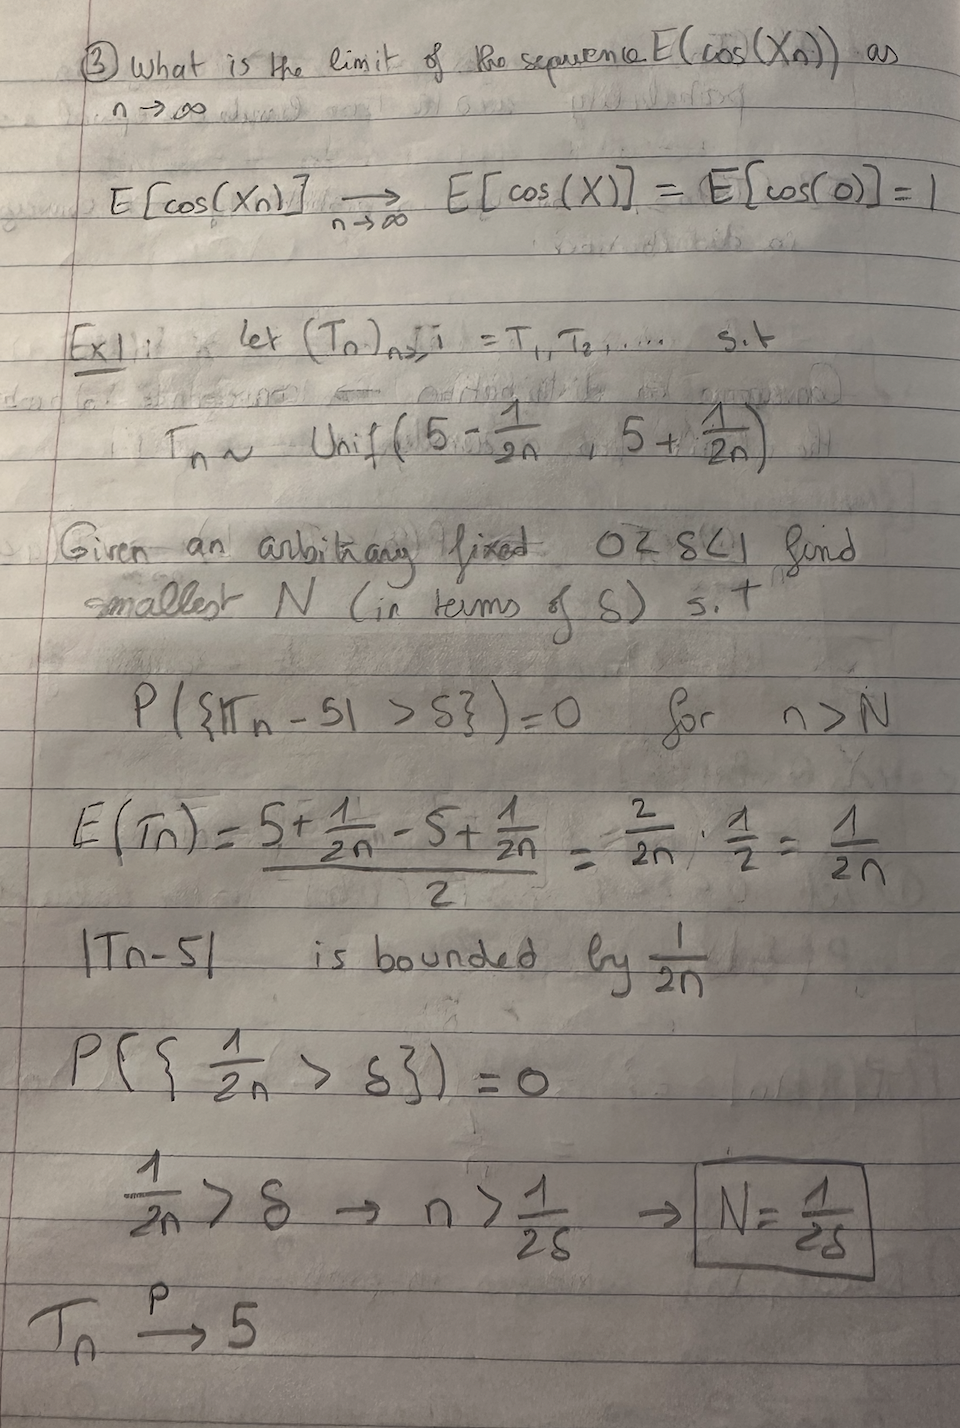 ③ What is the limit of the sequence E(cos(Xn)) as
n → ∞
E[cos(Xn)] →n→∞ E[cos(X)] = E[cos(0)] = 1
Ex1: let (Tn)n≥1 = T1, T2, .... s.t
Tn ~ Unif(5 - 1/2n , 5 + 1/2n)
Given an arbitrary fixed 0 < δ < 1 find
smallest N (in terms of δ) s.t
P({|Tn - 5| > δ}) = 0 for n > N
E(Tn) = (5 + 1/2n - 5 + 1/2n)/2 = 2/2n · 1/2 = 1/2n
|Tn - 5| is bounded by 1/2n
P({1/2n > δ}) = 0
1/2n > δ → n > 1/2δ → N = 1/2δ
Tn →P 5